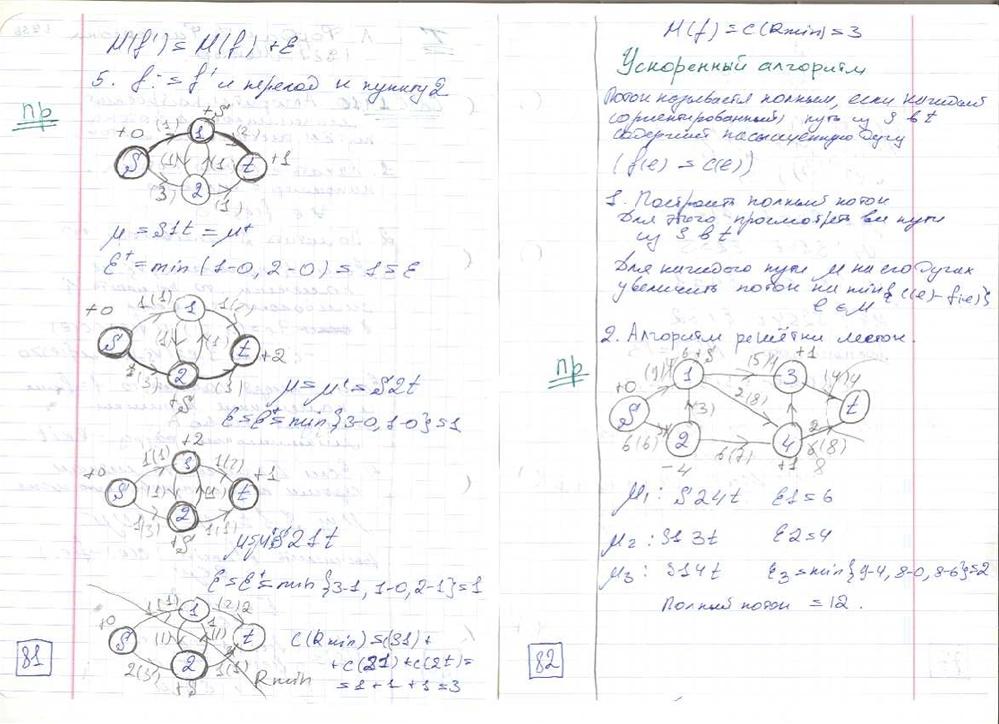 M(f') = M(f) + ε
5. f := f' и переход к пункту 2
пр
+S
+0 (1) 1 (2)
S (1) (1) t +1
(3) 2 (1)
μ = S1t = μ+
ε+ = min (1-0, 2-0) = 1 = ε
+0 1(1) 1 1(2)
S (1) (1) t +2
(3) 2 (1)
+S
μ = μ' = S2t
ε = ε+ = min {3-0, 1-0} = 1
+2
+0 1(1) 1 1(2) +1
S (1) (1) t
1(3) 2 1(1)
+S
S21t
ε = ε+ = min {3-1, 1-0, 2-1} = 1
+0 1(1) 1 (2)2
S (1) (1) t
2(3) 2 1(1)
+S Rmin
C(Rmin) = (S1) +
+ C(21) + C(2t) =
= 1 + 1 + 1 = 3
81
M(f) = C(Rmin) = 3
Ускоренный алгоритм
Поток называется полным, если каждый
(ориентированный) путь из S в t
содержит насыщенную дугу
(f(e) = C(e))
1. Построить полный поток
Для этого просмотреть все пути
из S в t
Для каждого пути μ на его дугах
увеличить поток на min{C(e)-f(e)}
e ∈ μ
2. Алгоритм расстановки меток.
пр
6 +S +1
(9) 1 15)4 3 (4)4
+0 2(8)
S (3) t
6(6) 2 6(7) 4 6(8)
-4 +1 8
μ1: S24t ε1 = 6
μ2: S13t ε2 = 4
μ3: S14t ε3 = min{9-4, 8-0, 8-6} = 2
Полный поток = 12.
82